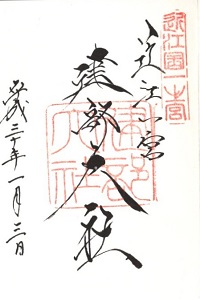 近江國一之宮
近江一宮
建部大社
建部大社
平成三十年一月三日